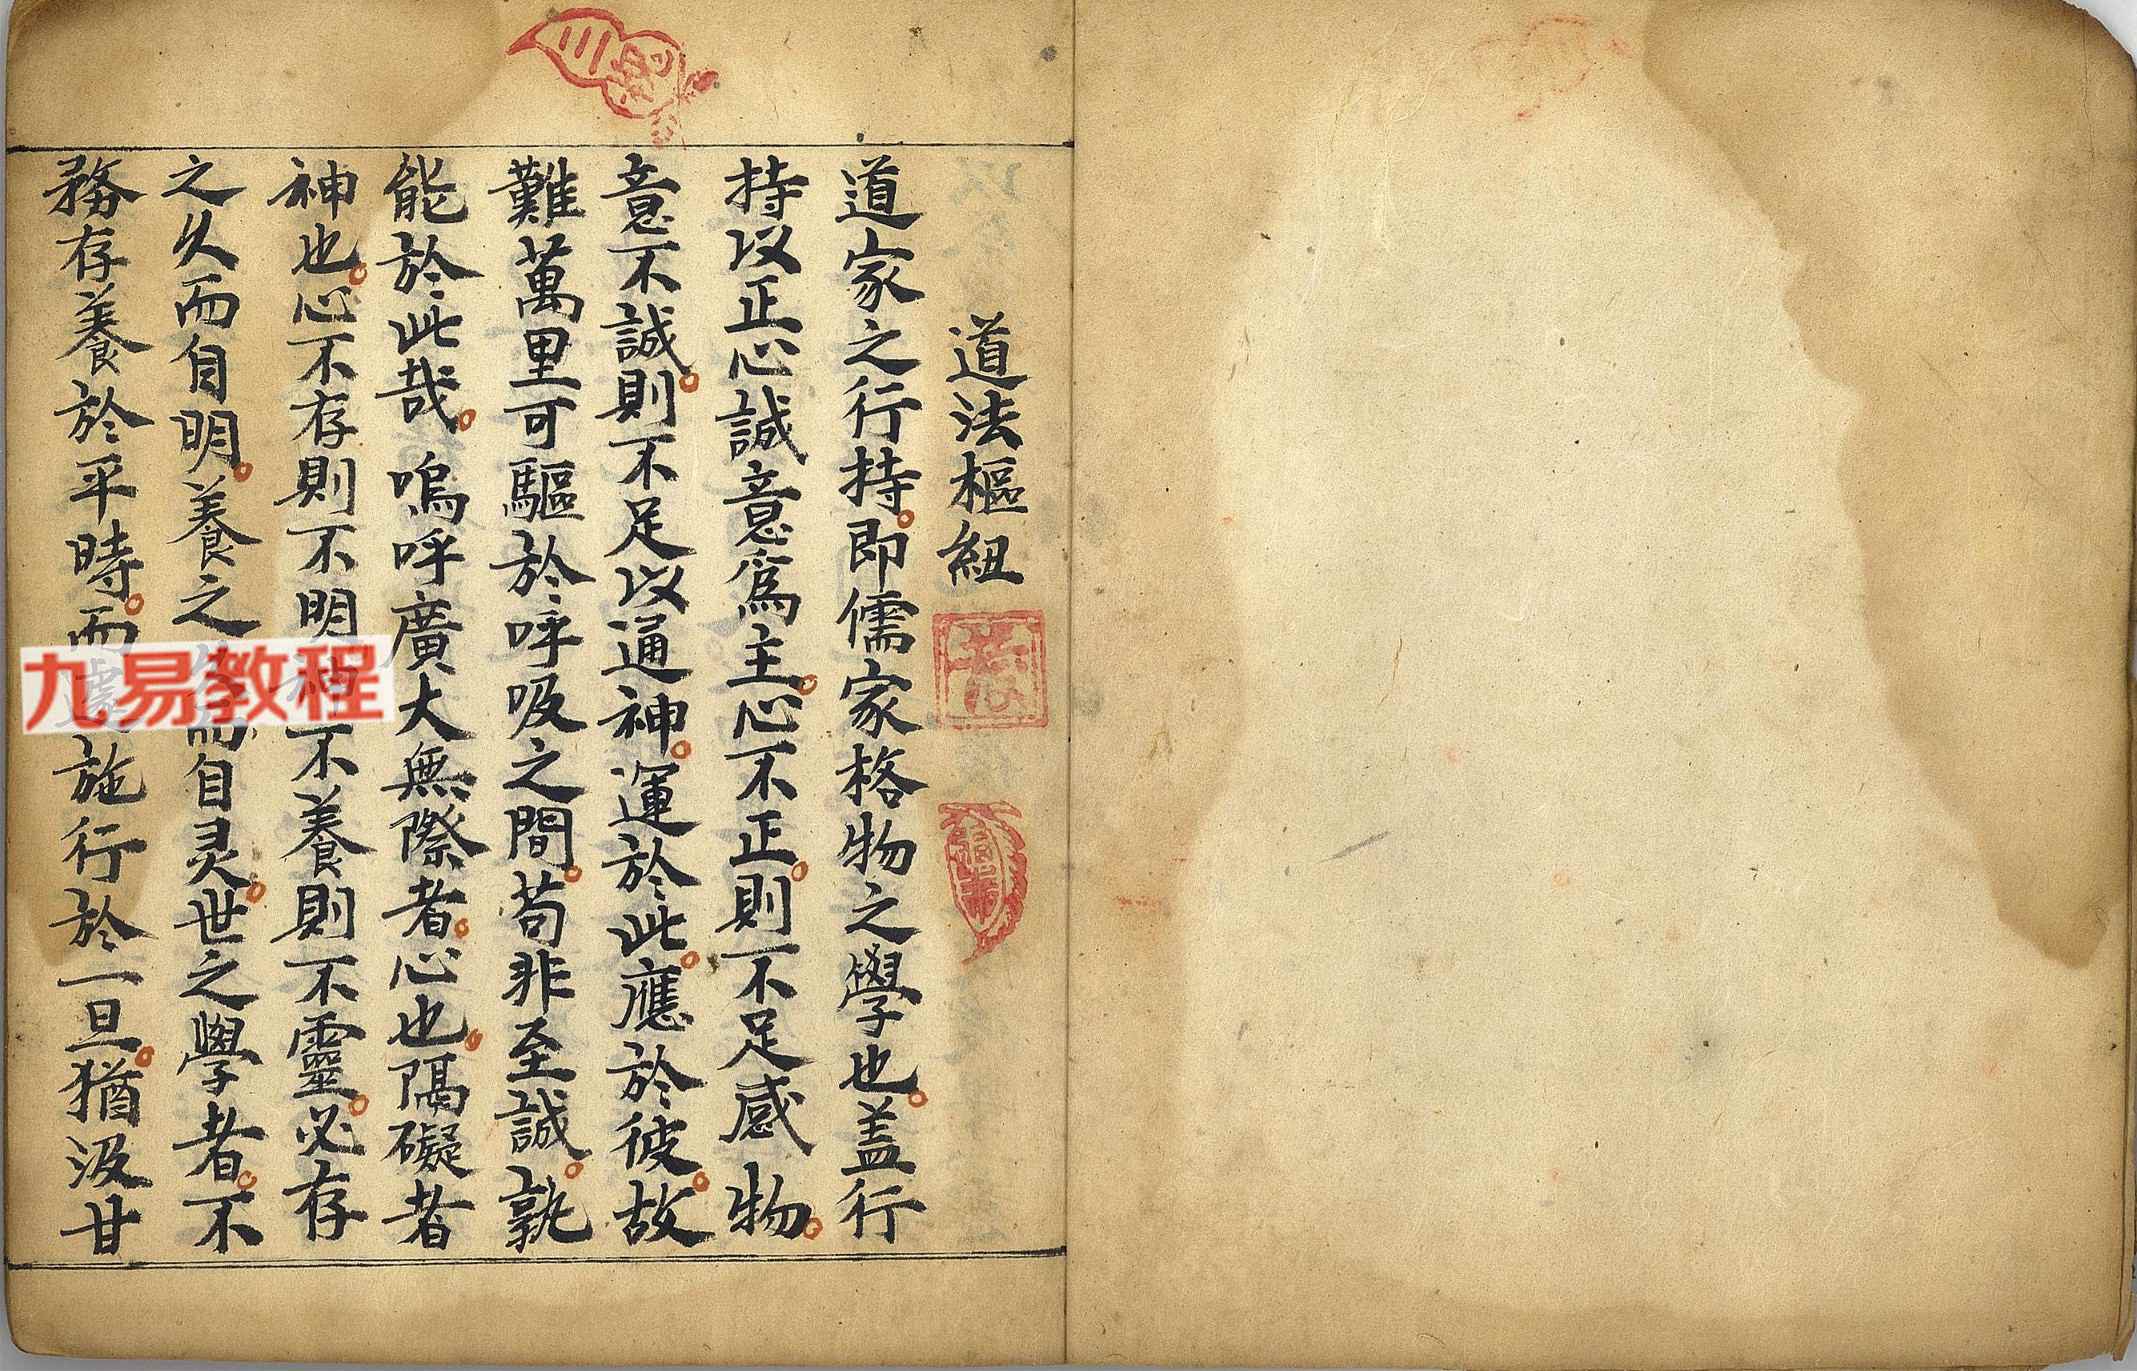 道法樞紐
道家之行持即儒家格物之學也盖行
持以正心誠意爲主心不正則不足感物
意不誠則不足以通神運於此應於彼故
難萬里可驅於呼吸之間苟非至誠孰
能於此哉嗚呼廣大無際者心也隔礙者
神也心不存則不明神不養則不靈必存
之久而自明養之而自灵世之學者不
務存養於平時而施行於一旦猶汲甘
九易教程